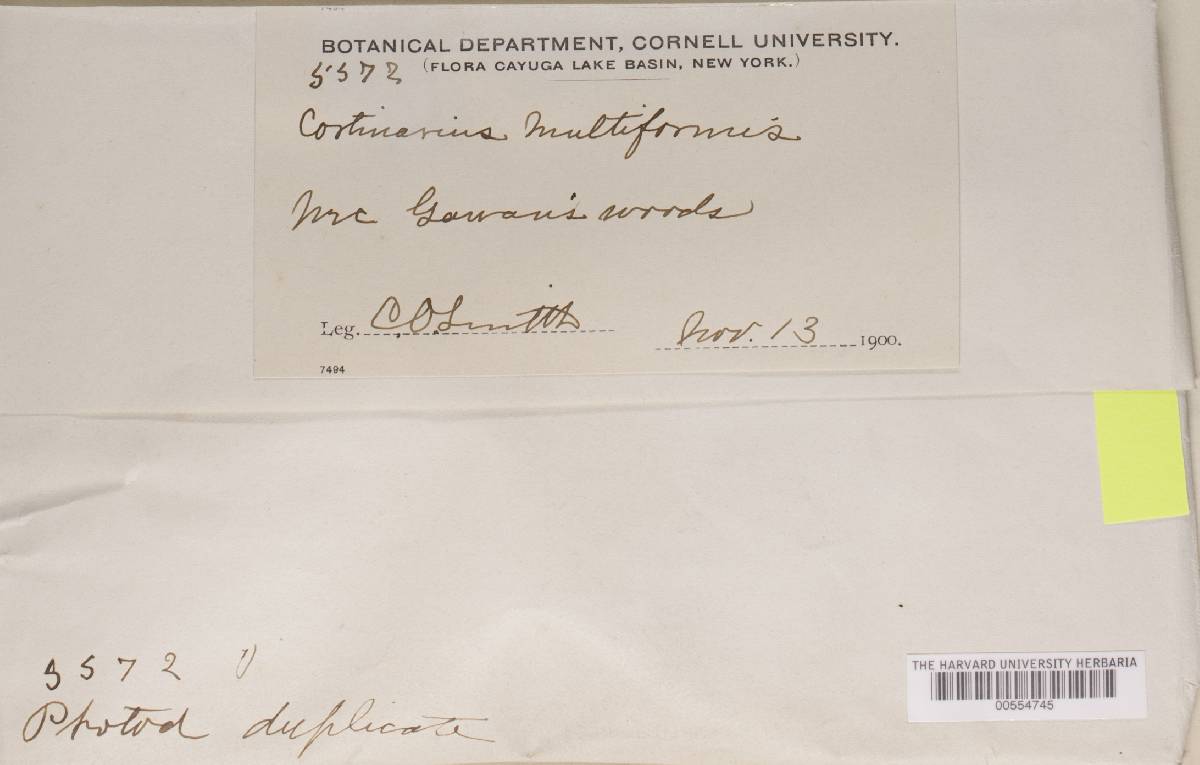 BOTANICAL DEPARTMENT, CORNELL UNIVERSITY.
(FLORA CAYUGA LAKE BASIN, NEW YORK.)
5572
Cortinarius Multiformis
Mc Gowan's woods
Leg. C.O. Smith Nov. 13 1900.
7494
5572
Photod duplicate
THE HARVARD UNIVERSITY HERBARIA
00554745